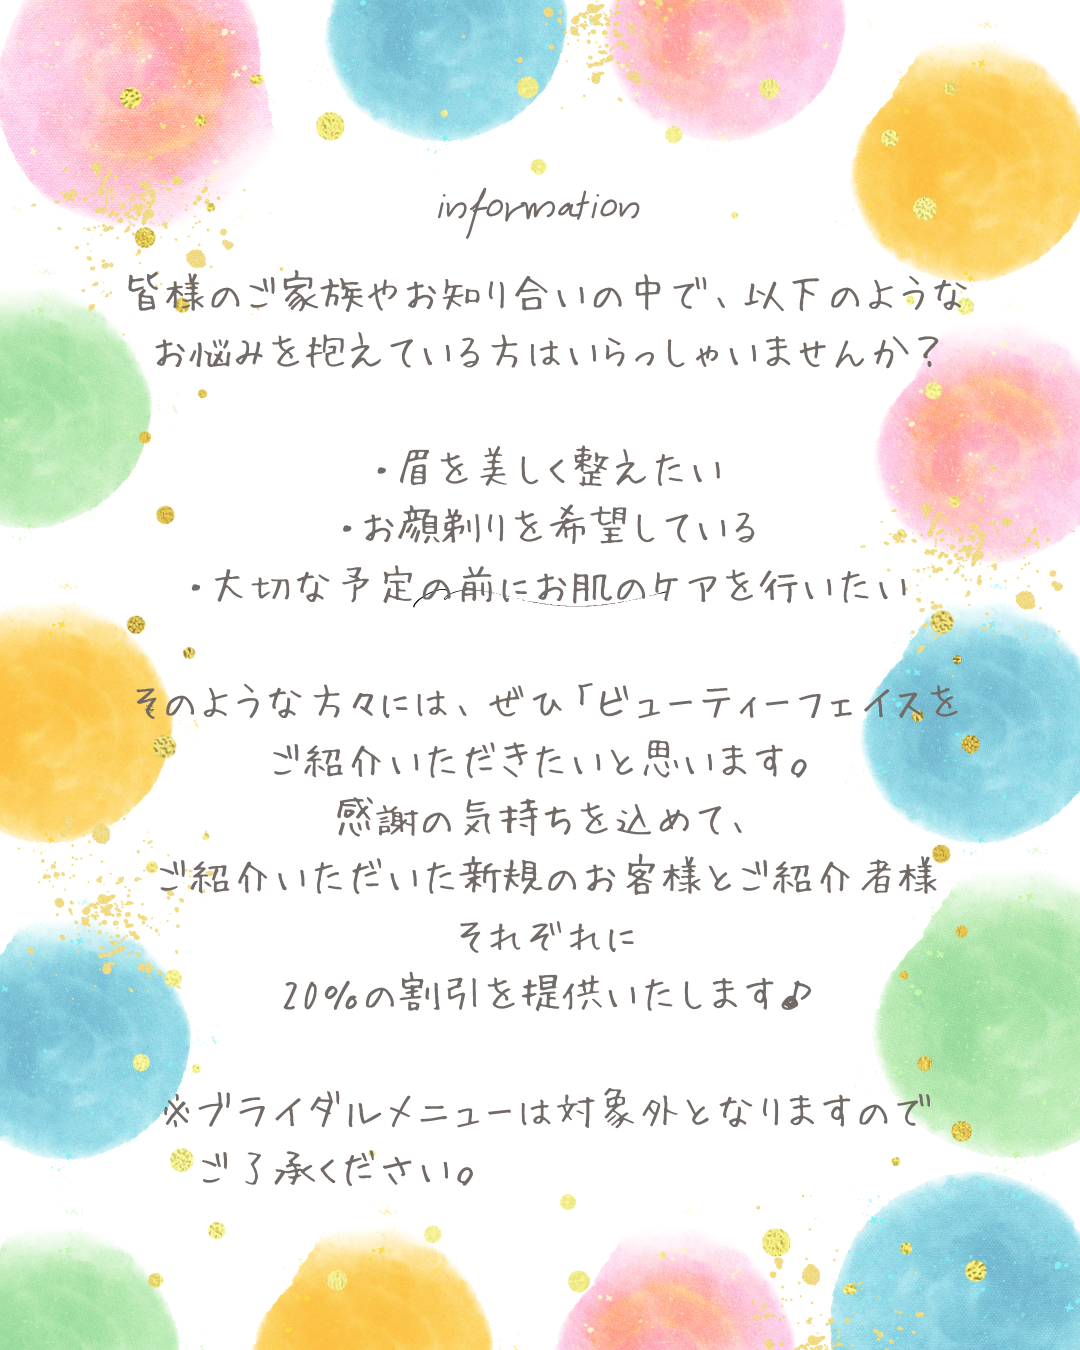 information
皆様のご家族やお知り合いの中で、以下のような
お悩みを抱えている方はいらっしゃいませんか？
・眉を美しく整えたい
・お顔剃りを希望している
・大切な予定の前にお肌のケアを行いたい
そのような方々には、ぜひ「ビューティーフェイスを
ご紹介いただきたいと思います。
感謝の気持ちを込めて、
ご紹介いただいた新規のお客様とご紹介者様
それぞれに
20%の割引を提供いたします♪
※ブライダルメニューは対象外となりますので
ご了承ください。